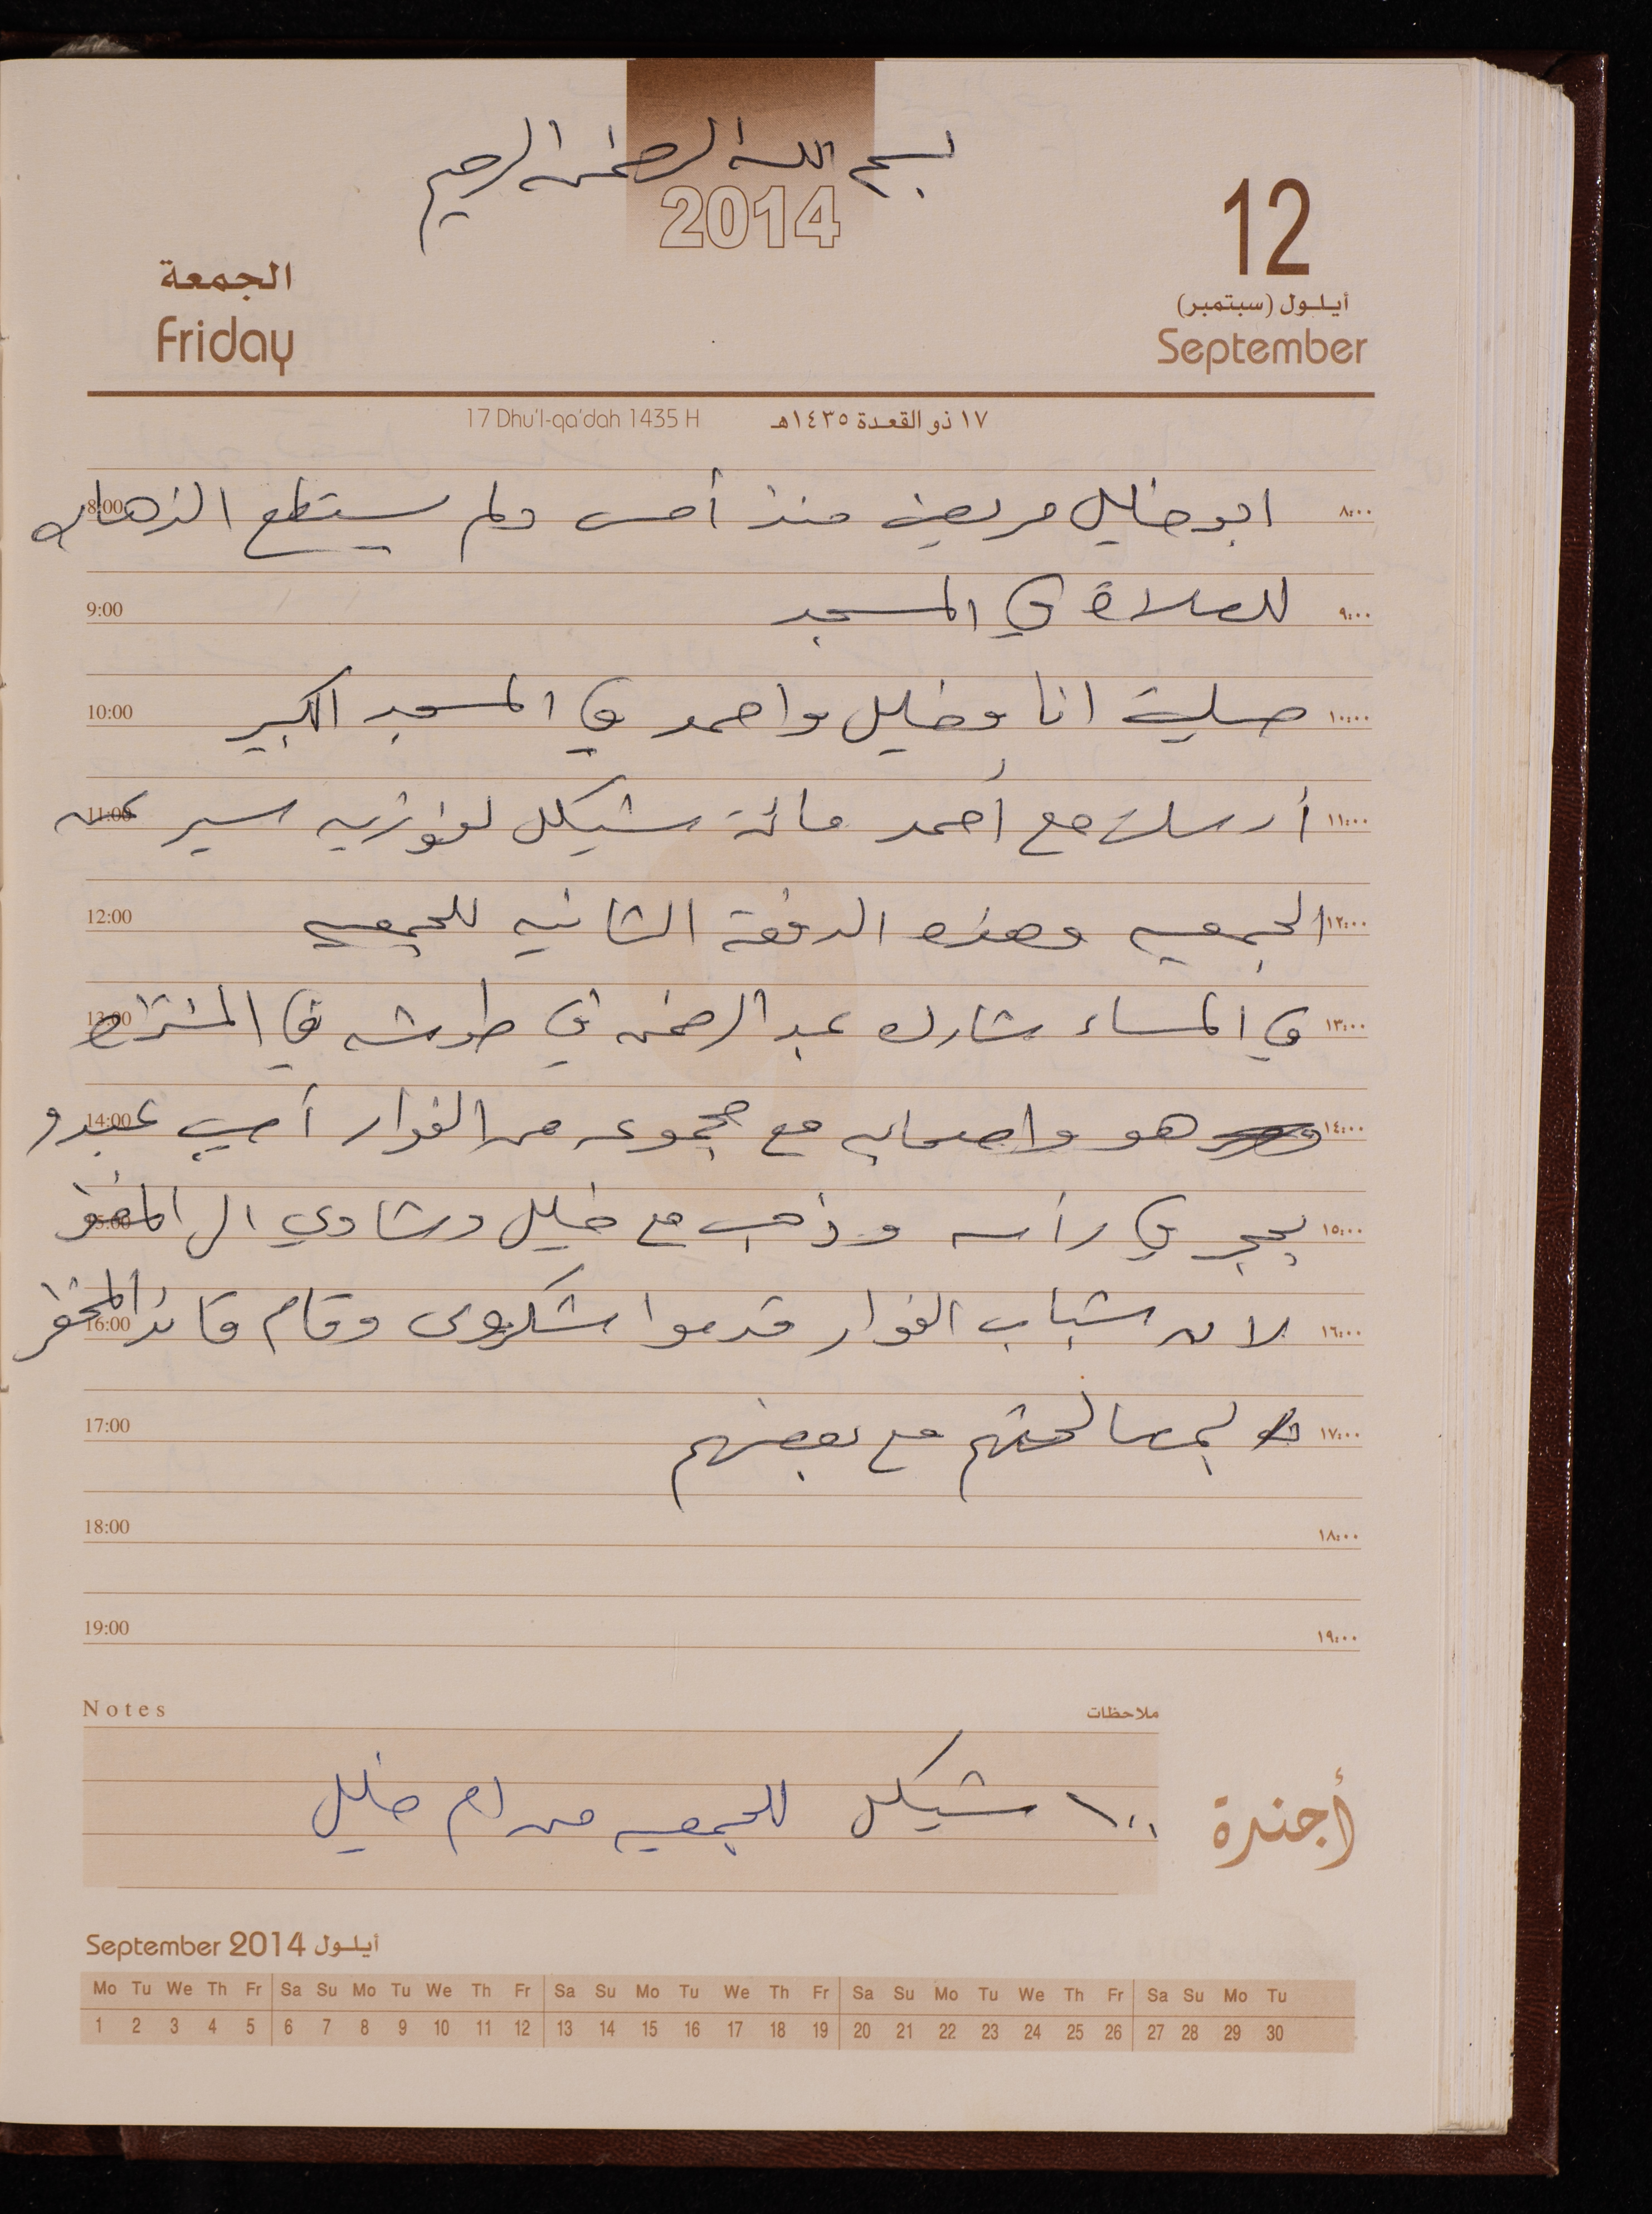 بسم الله الرحمن الرحيم
2014
12
أيلول (سبتمبر)
September
الجمعة
Friday
١٧ ذو القعدة ١٤٣٥هـ
17 Dhu'l-qa'dah 1435 H
٨:٠٠ ابو خليل مريض منذ أمس ولم يستطع الذهاب 8:00
٩:٠٠ للصلاة في المسجد 9:00
١٠:٠٠ صليت انا وخليل واحمد في المسجد الكبير 10:00
١١:٠٠ أرسلت مع أحمد مائة شيكل لفوزيه سير عن 11:00
١٢:٠٠ الجمعيه وهذه الدفعة الثانيه للجمعيه 12:00
١٣:٠٠ في المساء شارك عبد الرحمن في طوشه في المنتزه 13:00
١٤:٠٠ هو واصحابه مع مجموعه من الفوار أصيب عبدو 14:00
١٥:٠٠ بحجر في رأسه وذهب مع خليل وشادي الى المخفر 15:00
١٦:٠٠ لان شباب الفوار قدموا شكوى وقام قائد المخفر 16:00
١٧:٠٠ بمصالحتهم مع بعضهم 17:00
١٨:٠٠ 18:00
١٩:٠٠ 19:00
ملاحظات Notes
١٠٠ شيكل للجمعيه من ام خليل
أجندة
September 2014 أيلول
Mo Tu We Th Fr Sa Su Mo Tu We Th Fr Sa Su Mo Tu We Th Fr Sa Su Mo Tu We Th Fr Sa Su Mo Tu
1 2 3 4 5 6 7 8 9 10 11 12 13 14 15 16 17 18 19 20 21 22 23 24 25 26 27 28 29 30